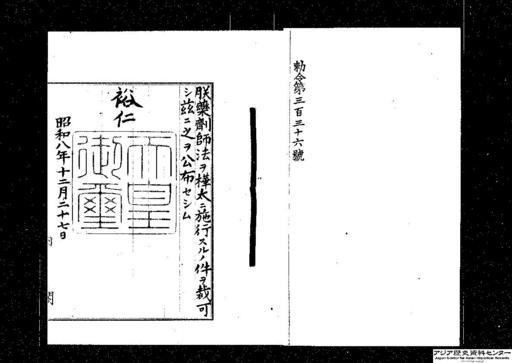 勅令第三百三十六號
朕藥劑師法ヲ樺太ニ施行スルノ件ヲ裁可
シ茲ニ之ヲ公布セシム
裕仁
天皇御璽
昭和八年十二月二十七日
アジア歴史資料センター
Japan Center for Asian Historical Records